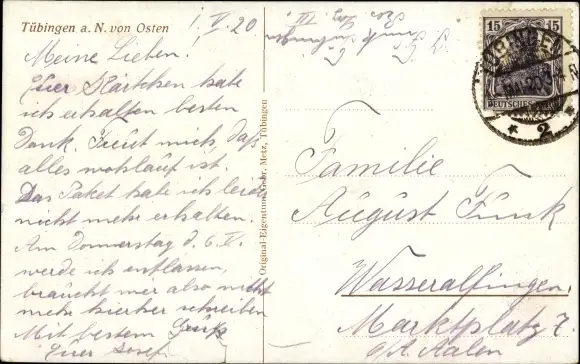 Tübingen a. N. von Osten
1. V. 20
Meine Lieben!
Euer Kärtchen habe
ich erhalten besten
Dank. Freut mich, daß
alles wohlauf ist.
Das Paket habe ich leider
nicht mehr erhalten.
Am Donnerstag d. 6. V.
werde ich entlassen,
braucht mir also nicht
mehr hierher schreiben
Mit bestem Gruß
Euer Josef
Original-Eigentum Gebr. Metz, Tübingen
15 15
TÜBINGEN
MAI 20
DEUTSCHES
* 2 *
Familie
August Funk
Wasseralfingen.
Marktplatz 7.
O/A. Aalen